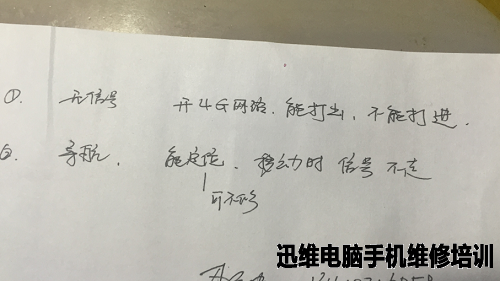 ①. 无信号 开4G网络. 能打出, 不能打进.
②. 导航. 能定位. 移动时 信号 不走
迅维电脑手机维修培训